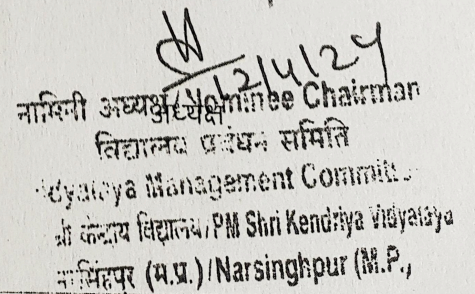 12/4/24
नामिनी अध्यक्ष/Nominee Chairman
अध्यक्ष
विद्यालय प्रबंधन समिति
Vidyalaya Management Committ
श्री केन्द्रीय विद्यालय/PM Shri Kendriya Vidyalaya
नरसिंहपुर (म.प्र.)/Narsinghpur (M.P.,